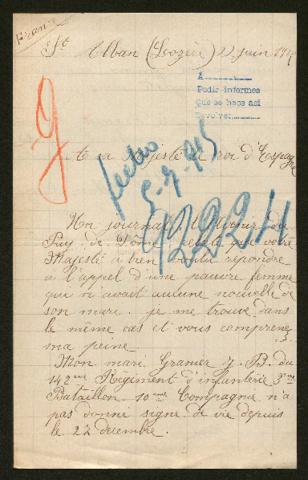 France
St Alban (Lozère) 22 juin 1915
A
Pedir informes
Que se haga asi
Devolver
A sa Majesté le roi d'Espagne
9
hecho
5-7-915
92224
Un journal le Moniteur du
Puy-de-Dôme relate que votre
Majesté à bien voulu répondre
a l'appel d'une pauvre femme
qui n'avait aucune nouvelle de
son mari. je me trouve dans
le même cas et vous comprenez
ma peine
Mon mari Granier J. B. du
142me Régiment d'infanterie 3me
Bataillon 10me Compagnie n'a
pas donné signe de vie depuis
le 22 décembre.